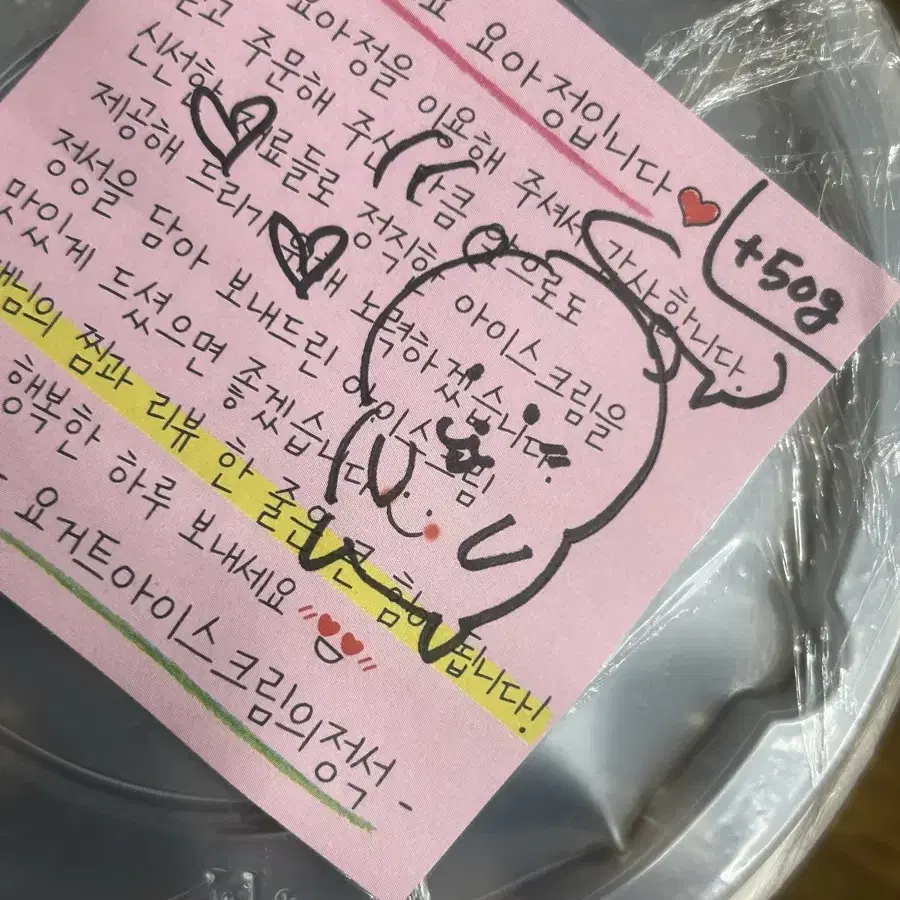 요 요아정입니다
요아정을 이용해 주셔서 감사합니다.
믿고 주문해 주신 만큼 앞으로도
신선한 재료들로 정직한 아이스크림을
제공해 드리기 위해 노력하겠습니다.
정성을 담아 보내드린 아이스크림
맛있게 드셨으면 좋겠습니다.
님의 찜과 리뷰 한 줄은 큰 힘이 됩니다!
행복한 하루 보내세요
- 요거트아이스크림의정석 -
+50g